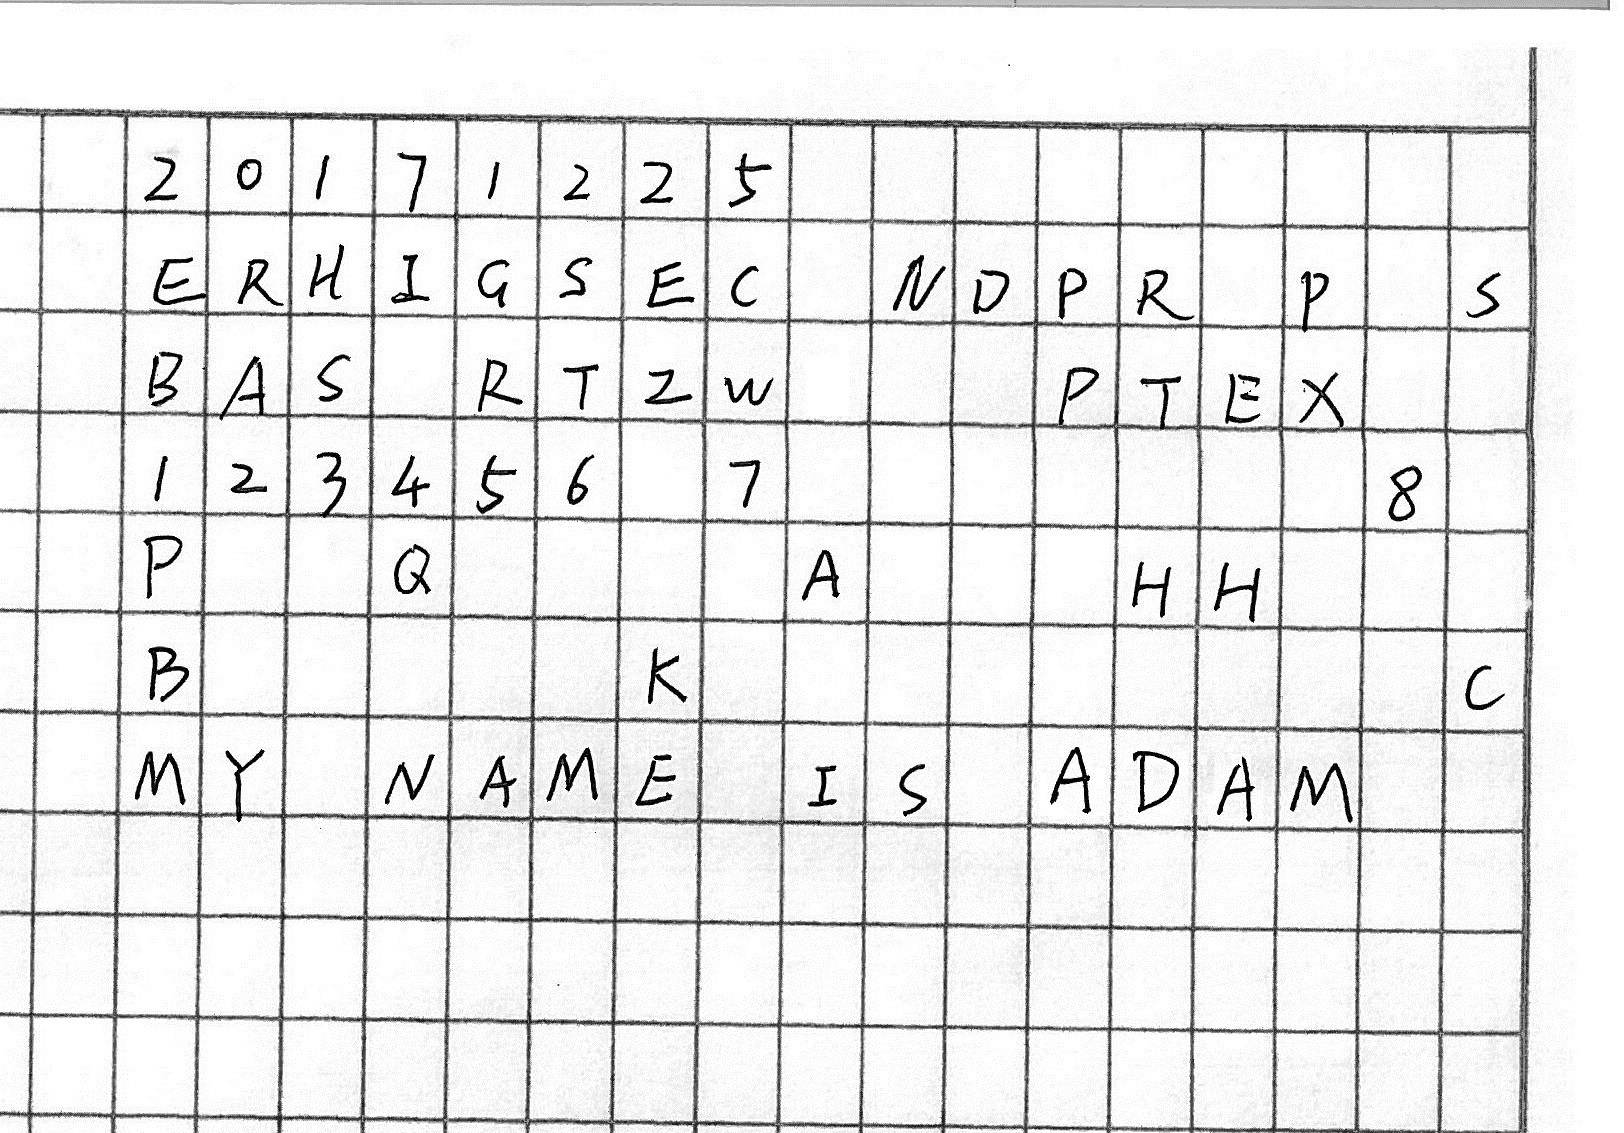 20171225
ERHIGSEC NDPR P S
BAS RTZW PTEX
123456 7 8
P Q A HH
B K C
MY NAME IS ADAM